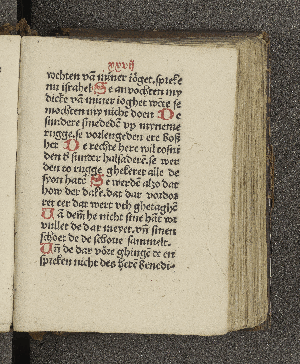 xxvij
vochten vā miner iöget. spreke
nu israhel Se anvochten my
dicke vā miner ioghet wēte se
mochten my nicht doen De
sundere smededē vp myneme
rugge. se vorlengeden ere boß
heit De rechte here wil tosni
den d' sunder halsaderē. se wer
den to rugge ghekeret alle de
syon hatē Se werdē alzo dat
how der dake. dat dar vordor
ret eer dat wert vth ghetaghē
Vā dem he nicht sine hāt vor
vullet de dar meyet. vn̄ sinen
schoet de de schoue sammelt.
Vn̄ de dar vöre ghingē te en
spreken nicht des herē benedi-